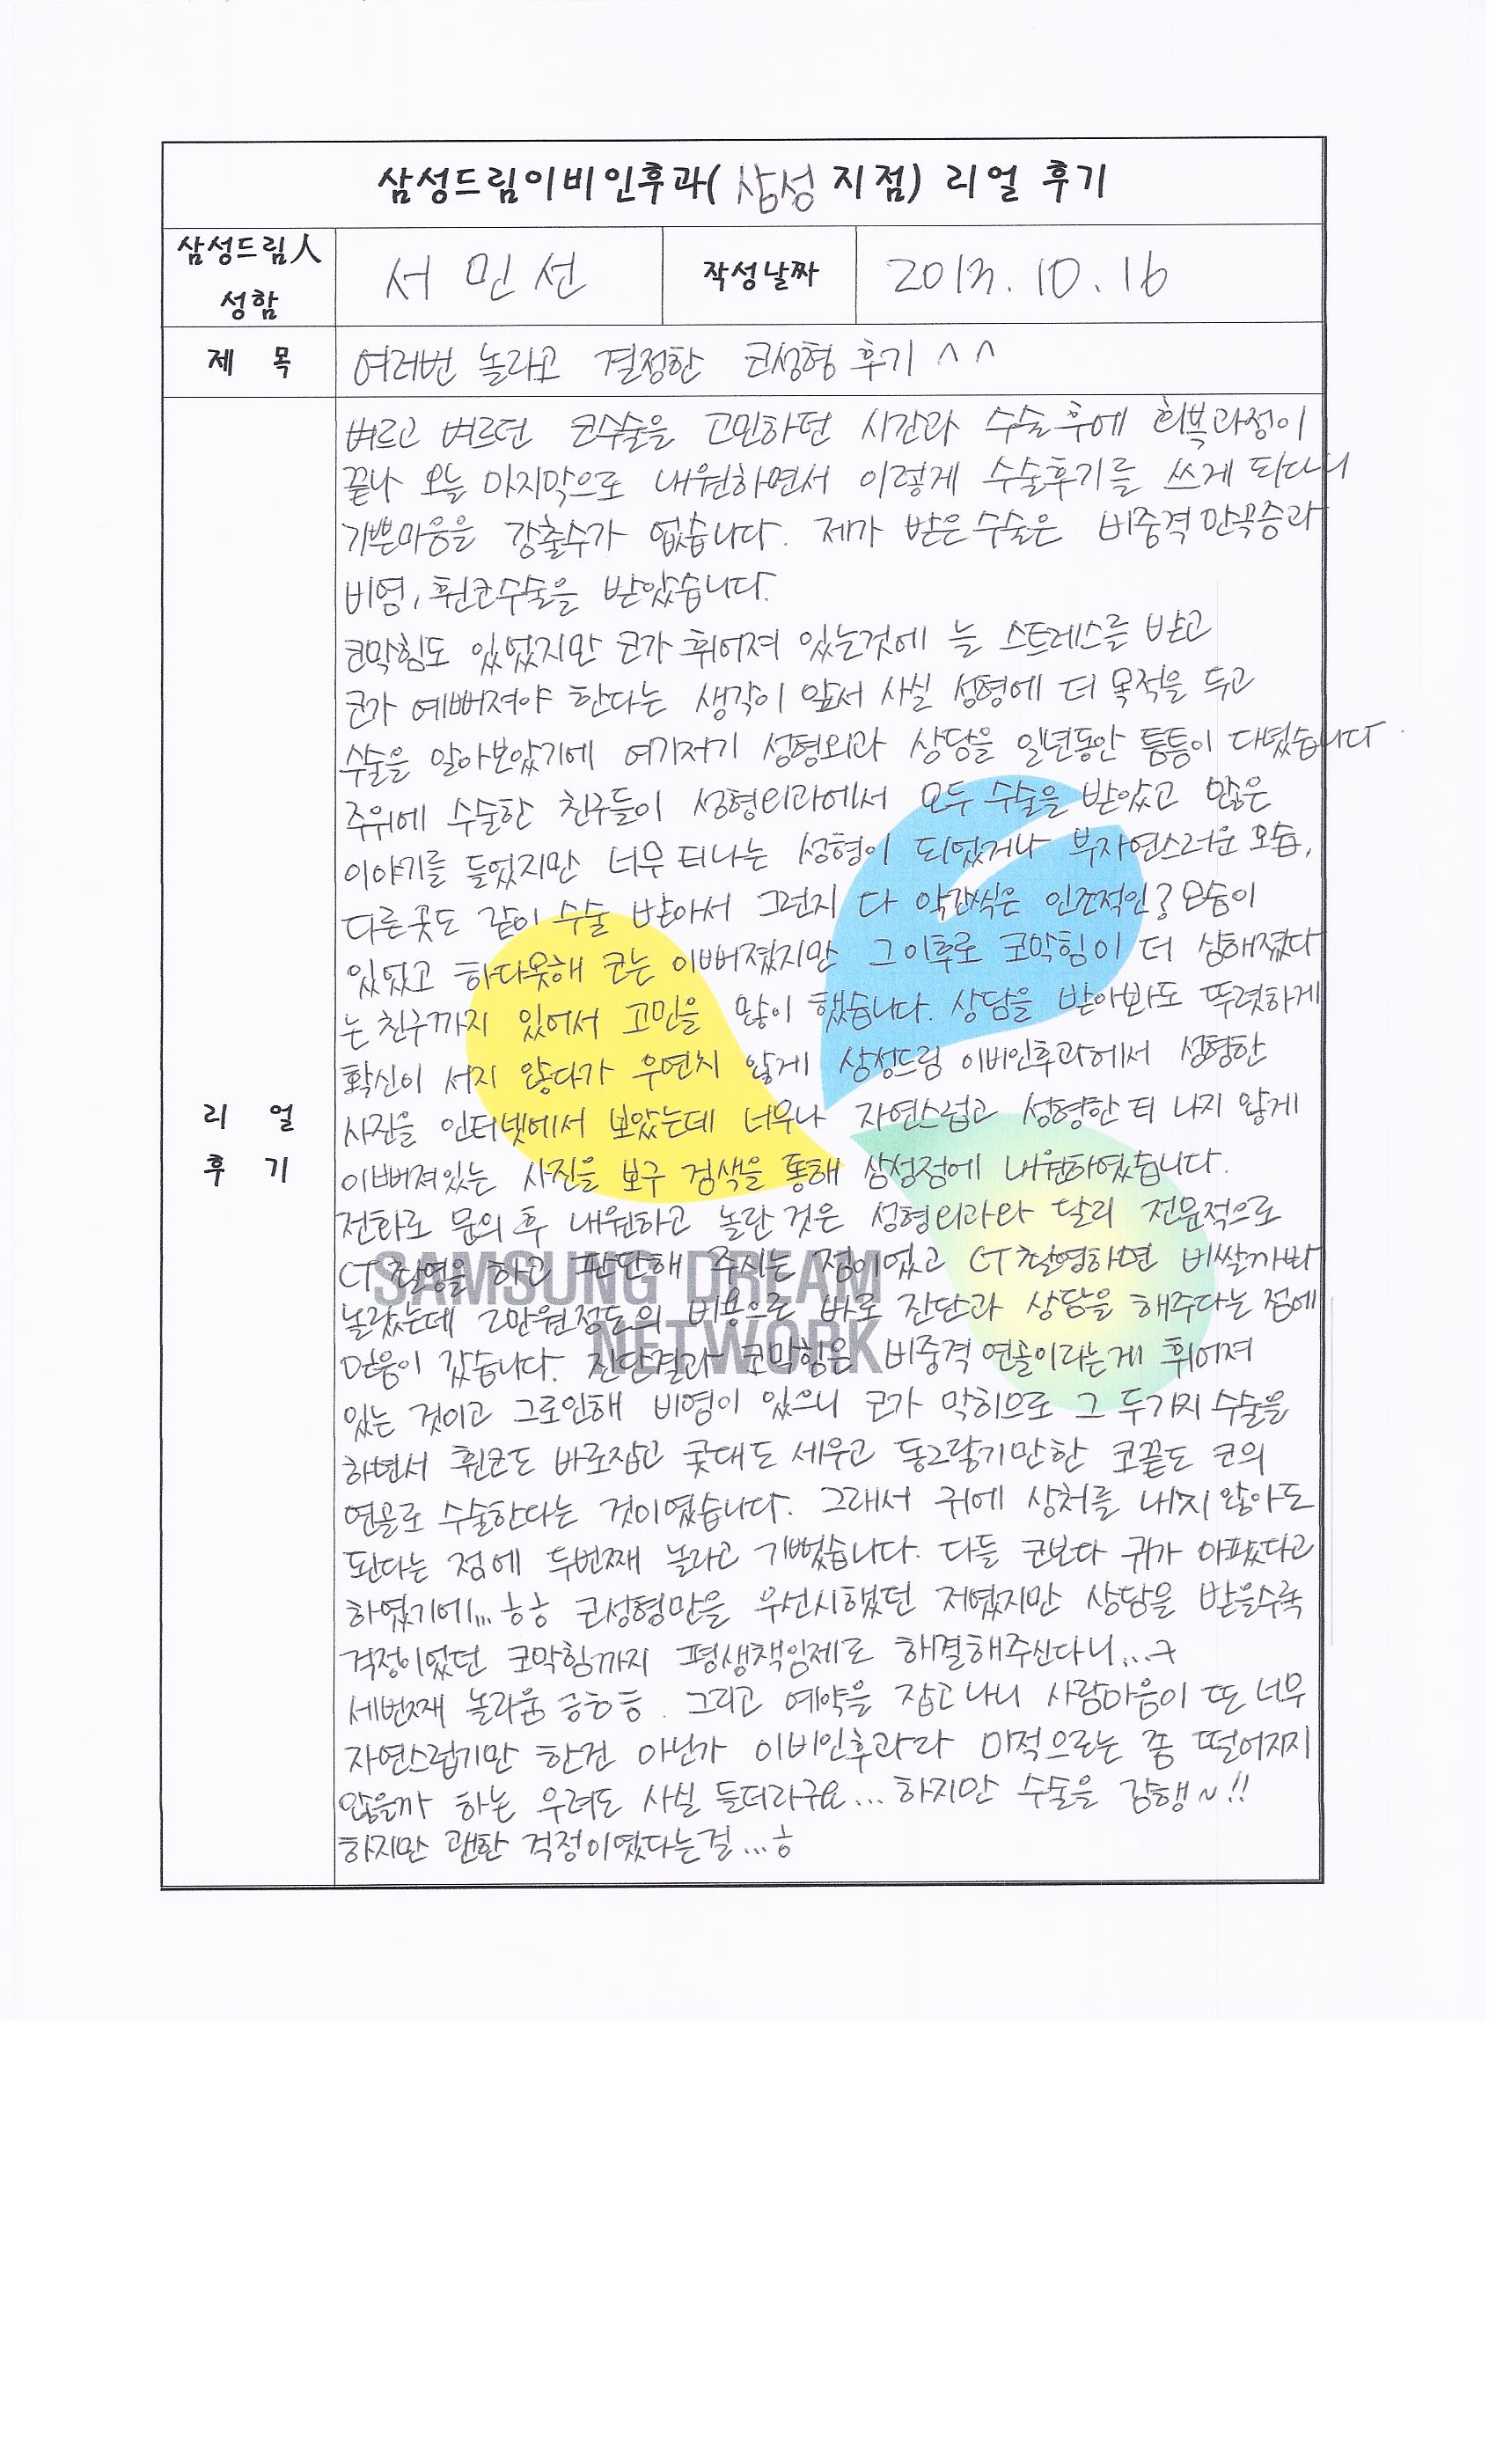 삼성드림이비인후과( 삼성 지점) 리얼 후기
삼성드림人
성함
서 민 선
작성날짜
2013. 10. 16
제 목
여러번 놀라고 결정한 코성형 후기 ^ ^
벼르고 벼르던 코수술을 고민하던 시간과 수술후에 회복과정이
끝나 오늘 마지막으로 내원하면서 이렇게 수술후기를 쓰게 되다니
기쁜마음을 감출수가 없습니다. 제가 받은수술은 비중격만곡증과
비염, 휜코수술을 받았습니다.
코막힘도 있었지만 코가 휘어져 있는것에 늘 스트레스를 받고
코가 예뻐져야 한다는 생각이 앞서 사실 성형에 더 목적을 두고
수술을 알아보았기에 여기저기 성형외과 상담을 일년동안 틈틈이 다녔습니다
주위에 수술한 친구들이 성형외과에서 모두 수술을 받았고 많은
이야기를 들었지만 너무 티나는 성형이 되었거나 부자연스러운모습,
다른곳도 같이 수술 받아서 그런지 다 약간씩은 인조적인? 모습이
있었고 하다못해 코는 이뻐졌지만 그이후로 코막힘이 더 심해졌다
는 친구까지 있어서 고민을 많이 했습니다. 상담을 받아봐도 뚜렷하게
확신이 서지 않다가 우연치 않게 삼성드림 이비인후과에서 성형한
사진을 인터넷에서 보았는데 너무나 자연스럽고 성형한 티 나지 않게
이뻐져있는 사진을 보구 검색을 통해 삼성점에 내원하였습니다.
전화로 문의 후 내원하고 놀란 것은 성형외과와 달리 전문적으로
CT 촬영을 하고 판단해 주시는 점이었고 CT촬영하면 비쌀까봐
놀랐는데 2만원정도의 비용으로 바로 진단과 상담을 해주다는 점에
믿음이 갔습니다. 진단결과 코막힘은 비중격연골이라는게 휘어져
있는 것이고 그로인해 비염이 있으니 코가 막히므로 그 두가지 수술을
하면서 휜코도 바로잡고 콧대도 세우고 동그랗기만한 코끝도 코의
연골로 수술한다는 것이였습니다. 그래서 귀에 상처를 내지 않아도
된다는 점에 두번째 놀라고 기뻤습니다. 다들 코보다 귀가 아팠다고
하였기에... ㅎㅎ 코성형만을 우선시했던 저였지만 상담을 받을수록
걱정이었던 코막힘까지 평생책임제로 해결해주신다니...ㅋ
세번째 놀라움 금ㅎㅎ. 그리고 예약을 잡고나니 사람마음이 또 너무
자연스럽기만 한건 아닌가 이비인후과라 미적으로는 좀 떨어지지
않을까 하는 우려도 사실 들더라구요... 하지만 수술을 감행~!!
하지만 괜한 걱정이였다는걸...ㅎ
리 얼
후 기
SAMSUNG DREAM
NETWORK